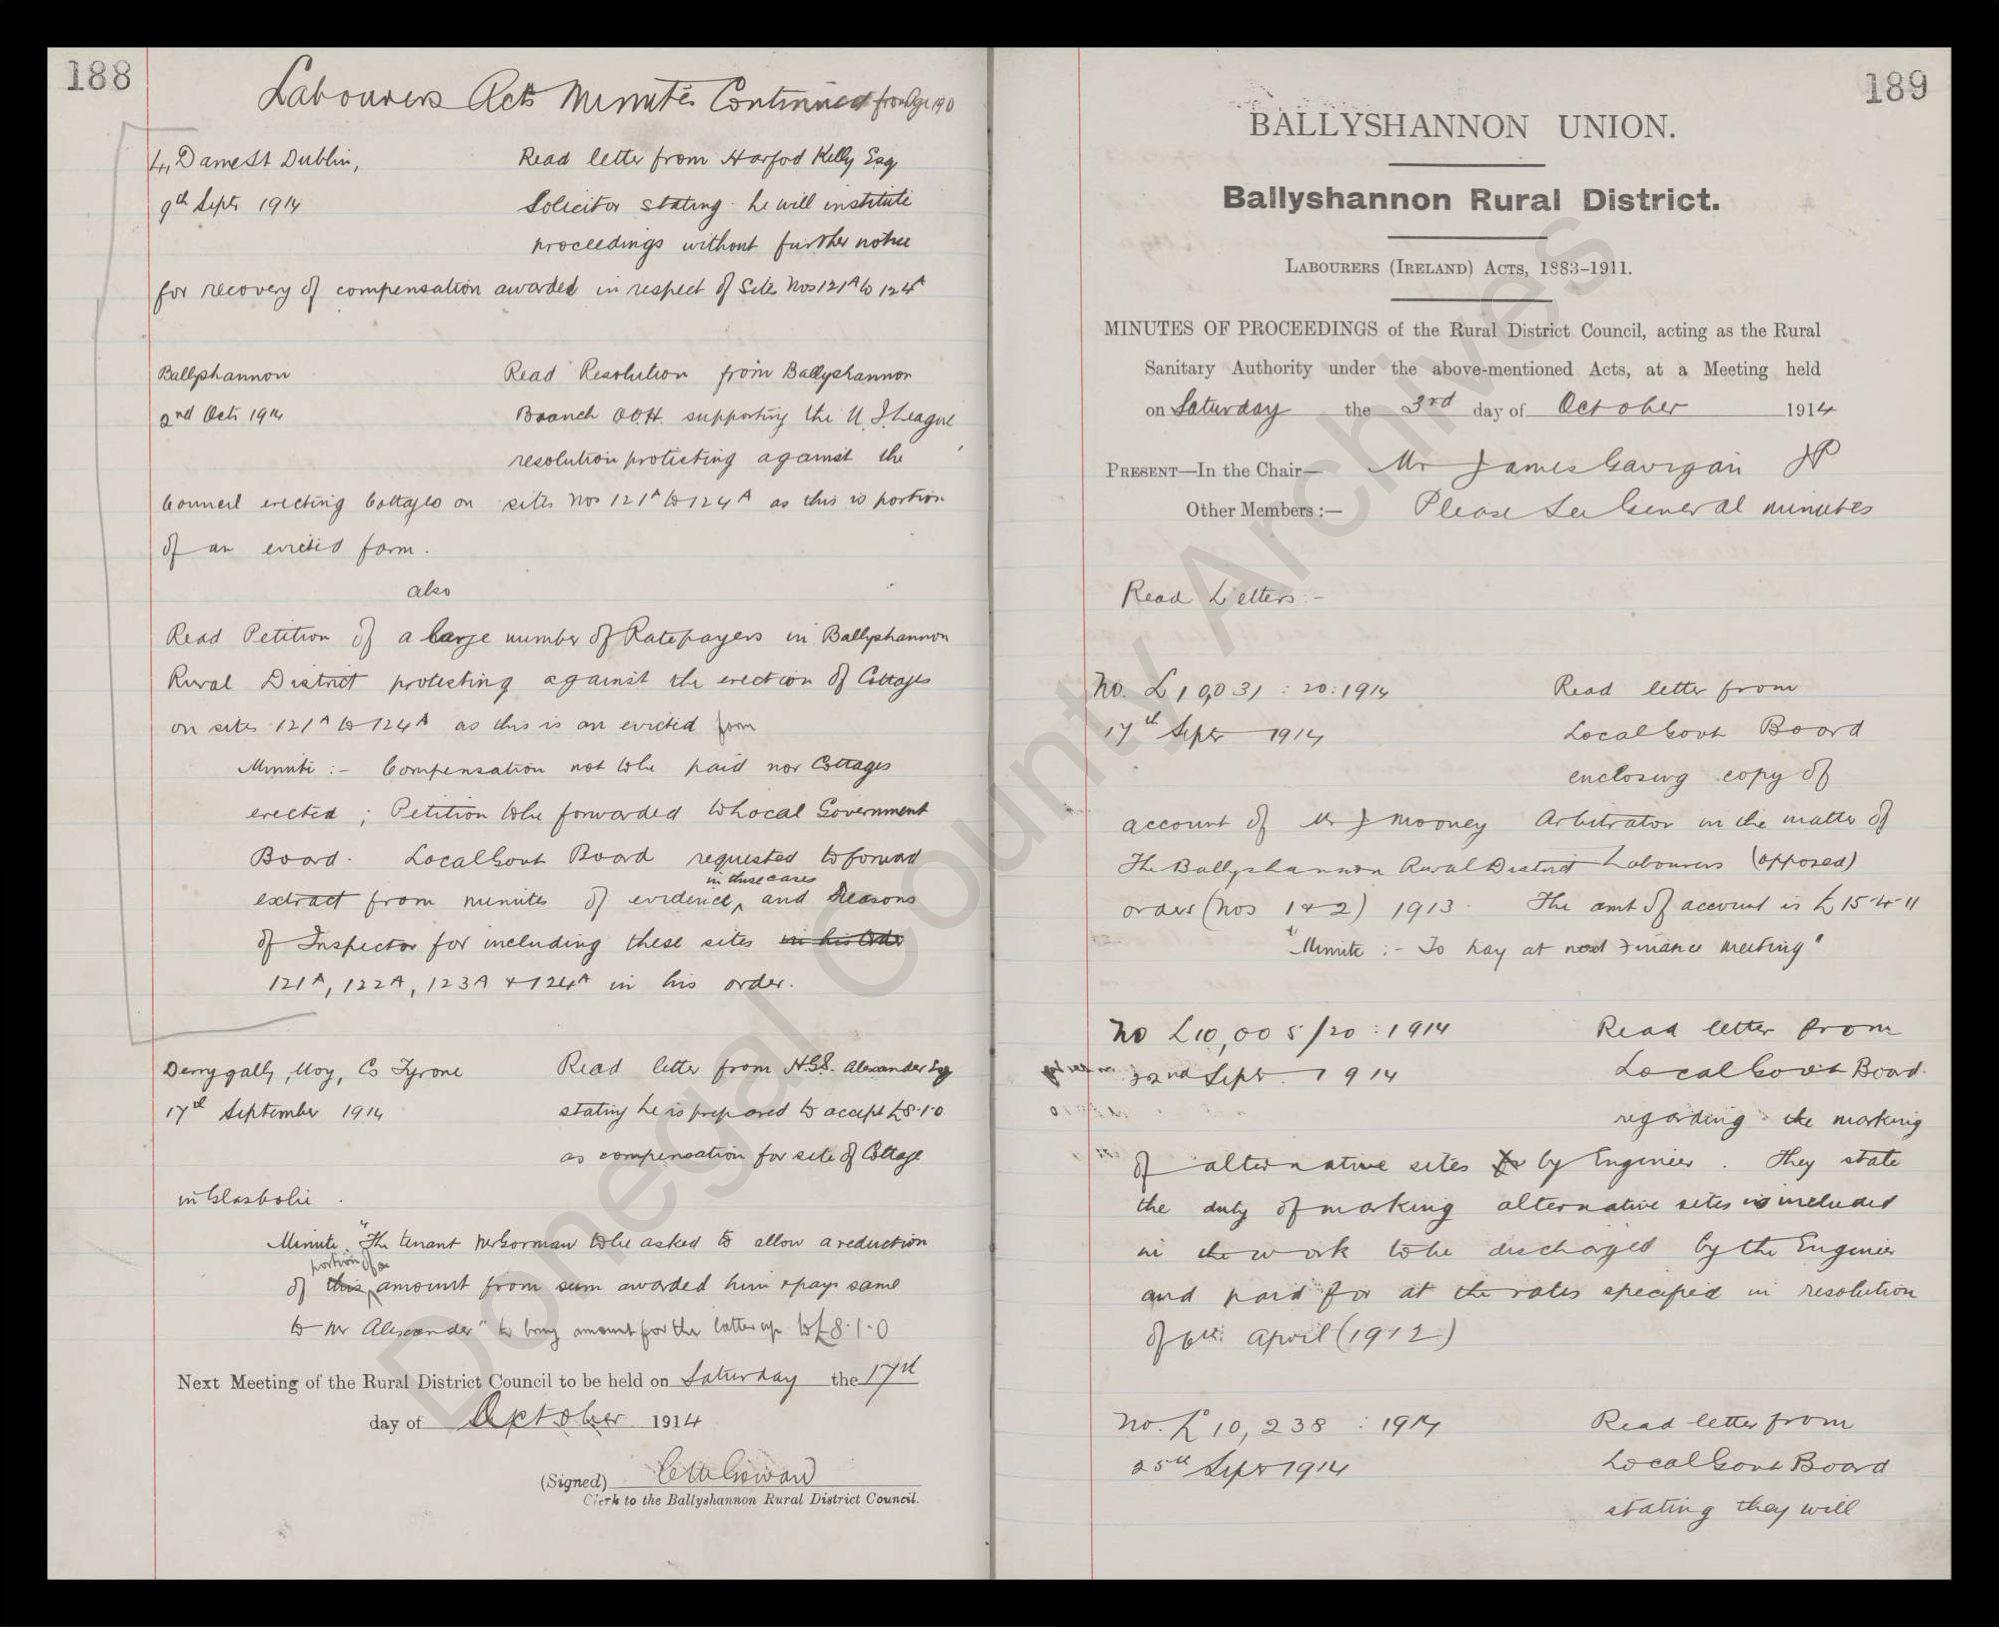 188
Labourers Acts Minutes Continued from Page 190
4, Dame St Dublin,
9th Septr 1914
Read letter from Harford Kelly Esq
Solicitor stating he will institute
proceedings without further notice
for recovery of compensation awarded in respect of Sites Nos 121A to 124A
Ballyshannon
2nd Octr 1914
Read Resolution from Ballyshannon
Branch A.O.H. supporting the U. I. League
resolution protesting against the
Council erecting Cottages on sites Nos 121A to 124A as this is portion
of an evicted farm.
also
Read Petition of a large number of Ratepayers in Ballyshannon
Rural District protesting against the erection of Cottages
on sites 121A to 124A as this is an evicted farm
Minute :- Compensation not to be paid nor Cottages
erected ; Petition to be forwarded to Local Government
Board. Local Govt Board requested to forward
in these cases
extract from minutes of evidence, and Reasons
of Inspector for including these sites in his Order
121A, 122A, 123A & 124A in his order.
Derrygally, Moy, Co Tyrone
17th September 1914
Read letter from H.G.S. Alexander Esq
stating he is prepared to accept £8.1.0
as compensation for site of Cottage
in Glasbolie .
Minute. "The tenant McGorman to be asked to allow a reduction
portion of a
of this amount from sum awarded him & pay same
to Mr Alexander" to bring amount for the latter up to £8.1.0
Next Meeting of the Rural District Council to be held on Saturday the 17th
day of October 1914
(Signed)
Clerk to the Ballyshannon Rural District Council.
189
BALLYSHANNON UNION.
Ballyshannon Rural District.
LABOURERS (IRELAND) ACTS, 1883-1911.
MINUTES OF PROCEEDINGS of the Rural District Council, acting as the Rural
Sanitary Authority under the above-mentioned Acts, at a Meeting held
on Saturday the 3rd day of October 1914
PRESENT—In the Chair— Mr James Gavigan JP
Other Members :— Please See General minutes
Read Letters :-
No. L 10,031 : 20 : 1914
17th Septr 1914
Read letter from
Local Govt Board
enclosing copy of
account of Mr J Mooney Arbitrator in the matter of
The Ballyshannon Rural District Labourers (opposed)
orders (Nos 1 & 2) 1913. The amt of account is £15-4-11
"Minute :- To pay at next Finance meeting"
No L10,005/20 : 1914
22nd Septr. 1914
Read letter from
Local Govt Board
regarding the marking
of alternative sites by Engineer . They state
the duty of marking alternative sites is included
in the work to be discharged by the Engineer
and paid for at the rates specified in resolution
of 6th April (1912)
No. L 10,238 : 1914
25th Septr 1914
Read letter from
Local Govt Board
stating they will
Donegal County Archives